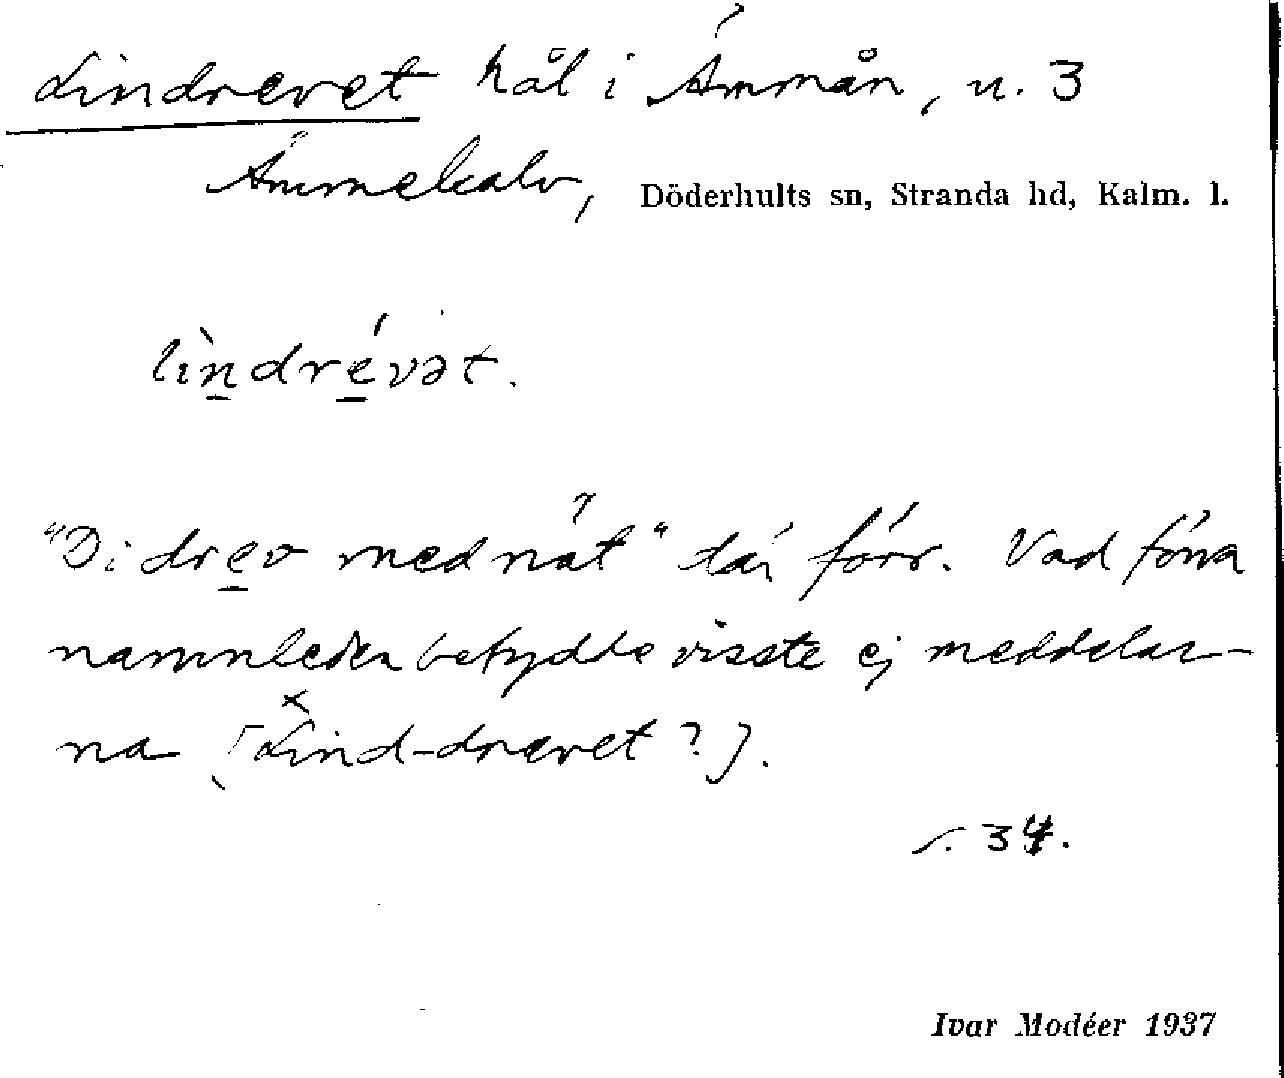 Lindrevet hål i Ämmån, u. 3
Ämmekalv, Döderhults sn, Stranda hd, Kalm. l.
lìndrévət.
"Di drev med nät" där förr. Vad förra
namnleden betydde visste ej meddelar-
na [Lind-drevet ?].
s. 34.
Ivar Modéer 1937